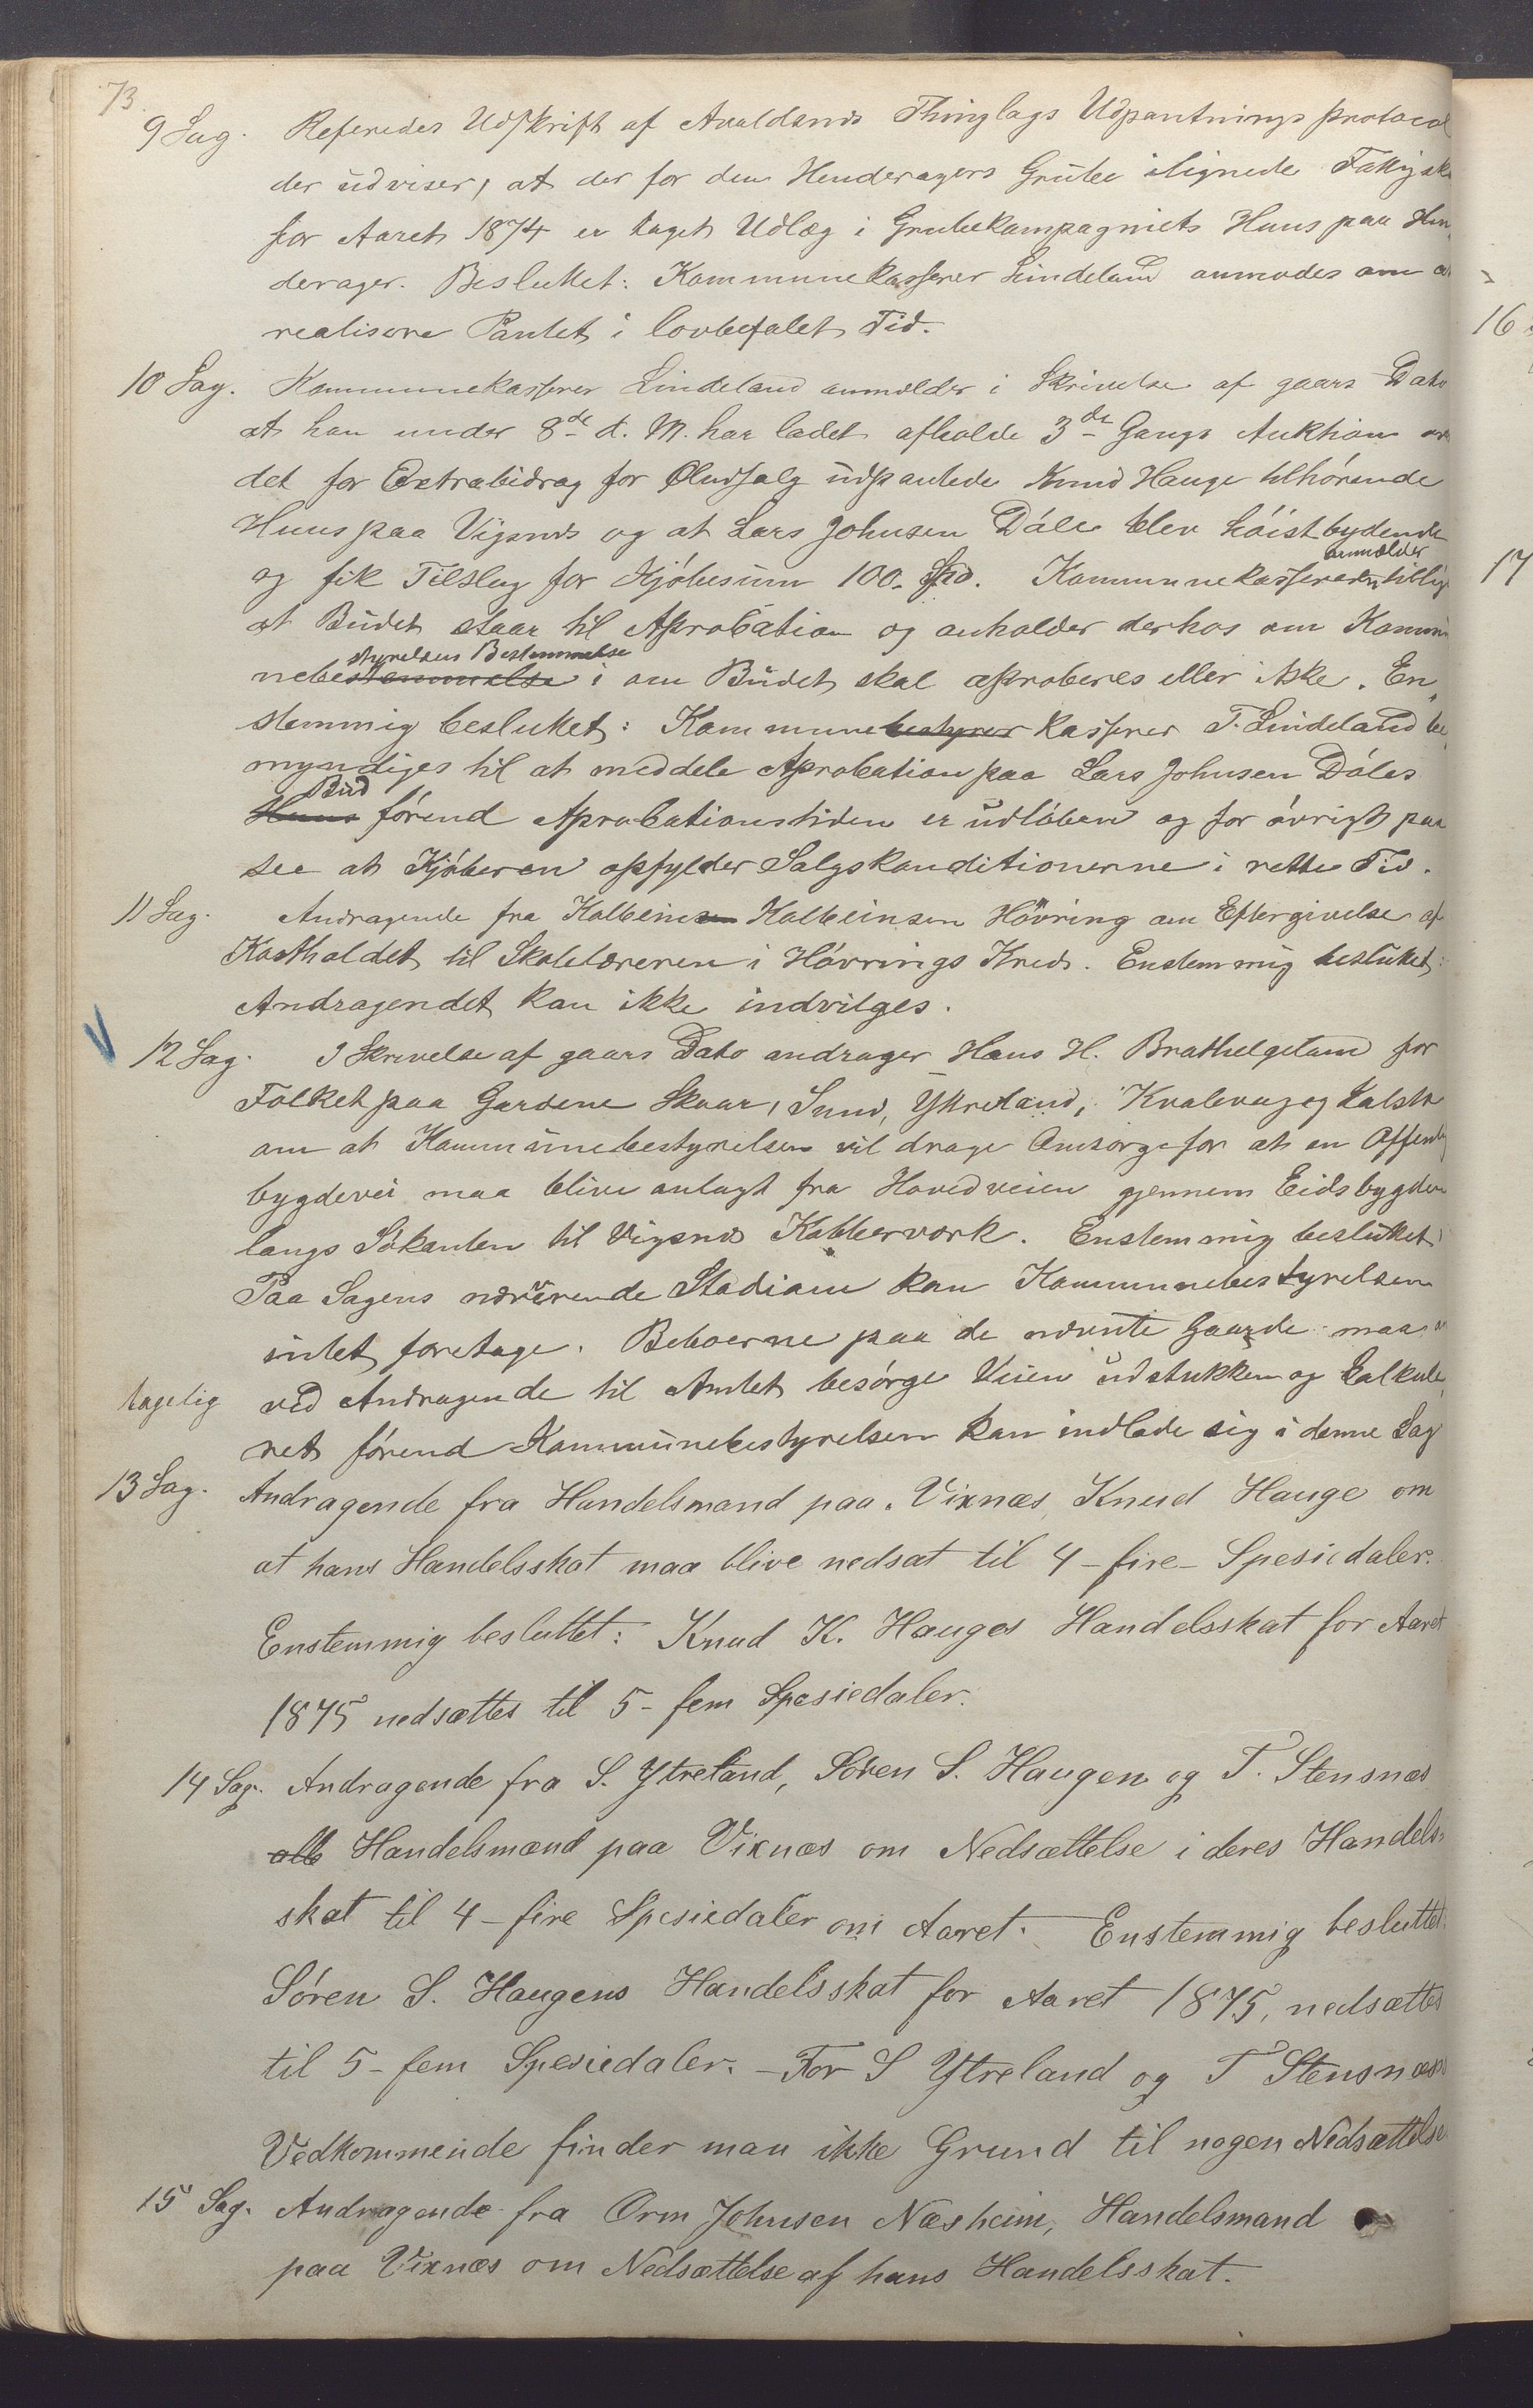 73.
9 Sag. Refereredes Udskrift af Avaldsnes Thinglags Udpantnings protocol
der udviser, at der for den Henderagers Grube ilignede Fattigsk
for Aaret 1874 er taget Udlæg i Grubekompagniets Huus paa Hen„
derager. Besluttet: Kommunekasserer Lindeland anmodes om a
realisere Pantet i lovbefalet Tid.
10 Sag. Kommunekasserer Lindeland anmelder i Skrivelse af gaars Dato
at han under 8de d. M. har ladet afholde 3die Gangs Auktion ov
det for Extrabidrag for Øludsalg udpantede Knud Hauge tilhørende
Huus paa Vigsnes og at Lars Johnsen Dåle blev høistbydende
anmelder
og fik Tilslag for Kjøbesum 100. Spd. Kommunekassereren tillige
at Budet staar til Aprobation og anholder derhos om Kommu
styrelsens Bestemmelse
nebestemmelse i om Budet skal aproberes eller ikke. En„
stemmig besluttet: Kommunebestyrer kasserer T. Lindeland be„
myndiges til at meddele Aprobation paa Lars Johnsen Dåles
Bud
Huus førend Aprobationstiden er udløben og for øvrigt paa
see at Kjøberen opfylder Salgskonditionerne i rette Tid.
11 Sag. Andragende fra Kolbeinsen Kolbeinsen Høvring om Eftergivelse af
Kostholdet til Skolelæreren i Høvrings Kreds. Enstemmig besluttet:
Andragendet kan ikke indvilges.
12 Sag. I Skrivelse af gaars Dato andrager Hans H. Brathelgeland for
Folket paa Gardene Skaar, Sund, Yttreland, Kvalevag og Kalstø
om at Kommunebestyrelsen vil drage Omsorg for at en Offentlig
bygdevei maa blive anlagt fra Hovedveien gjennem Eidsbygden
langs Søkanten til Vigsnes Kobberværk. Enstemmig besluttet
Paa Sagens nærværende Stadium kan Kommunebestyrelsen
intet foretage. Beboerne paa de nævnte Gaarde maa
tagelig ved Andragende til Amtet besørge Veien udstukken og Kalkule„
ret førend Kommunebestyrelsen kan indlade sig i denne Sag
13 Sag. Andragende fra Handelsmand paa Vixnæs, Knud Hauge om
at hans Handelsskat maa blive nedsat til 4 - fire - Spesiedaler.
Enstemmig besluttet: Knud K. Hauges Handelsskat for Aaret
1875 nedsættes til 5 - fem Spesiedaler.
14 Sag. Andragende fra S. Ytreland, Søren S. Haugen og T. Stensnæs
alle Handelsmænd paa Vixnæs om Nedsættelse i deres Handels„
skat til 4 - fire Spesiedaler om Aaret. Enstemmig besluttet:
Søren S. Haugens Handelsskat for Aaret 1875, nedsættes
til 5 - fem Spesiedaler. - For S Ytreland og T Stensnæs
Vedkommende finder man ikke Grund til nogen Nedsættelse
15 Sag. Andragende fra Orm Johnsen Næsheim, Handelsmand
paa Vixnæs om Nedsættelse af hans Handelsskat.
16
17